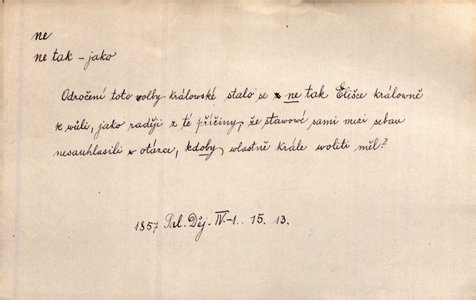 ne
ne tak – jako
Odročení toto volby královské stalo se ne tak Elišce králowně
k wůli, jako raději z té příčiny, že stawowé sami mezi sebau
nesauhlasili w otázce, kdoby wlastně krále woliti měl?
1857 Pal. Děj. IV–1. 15. 13.